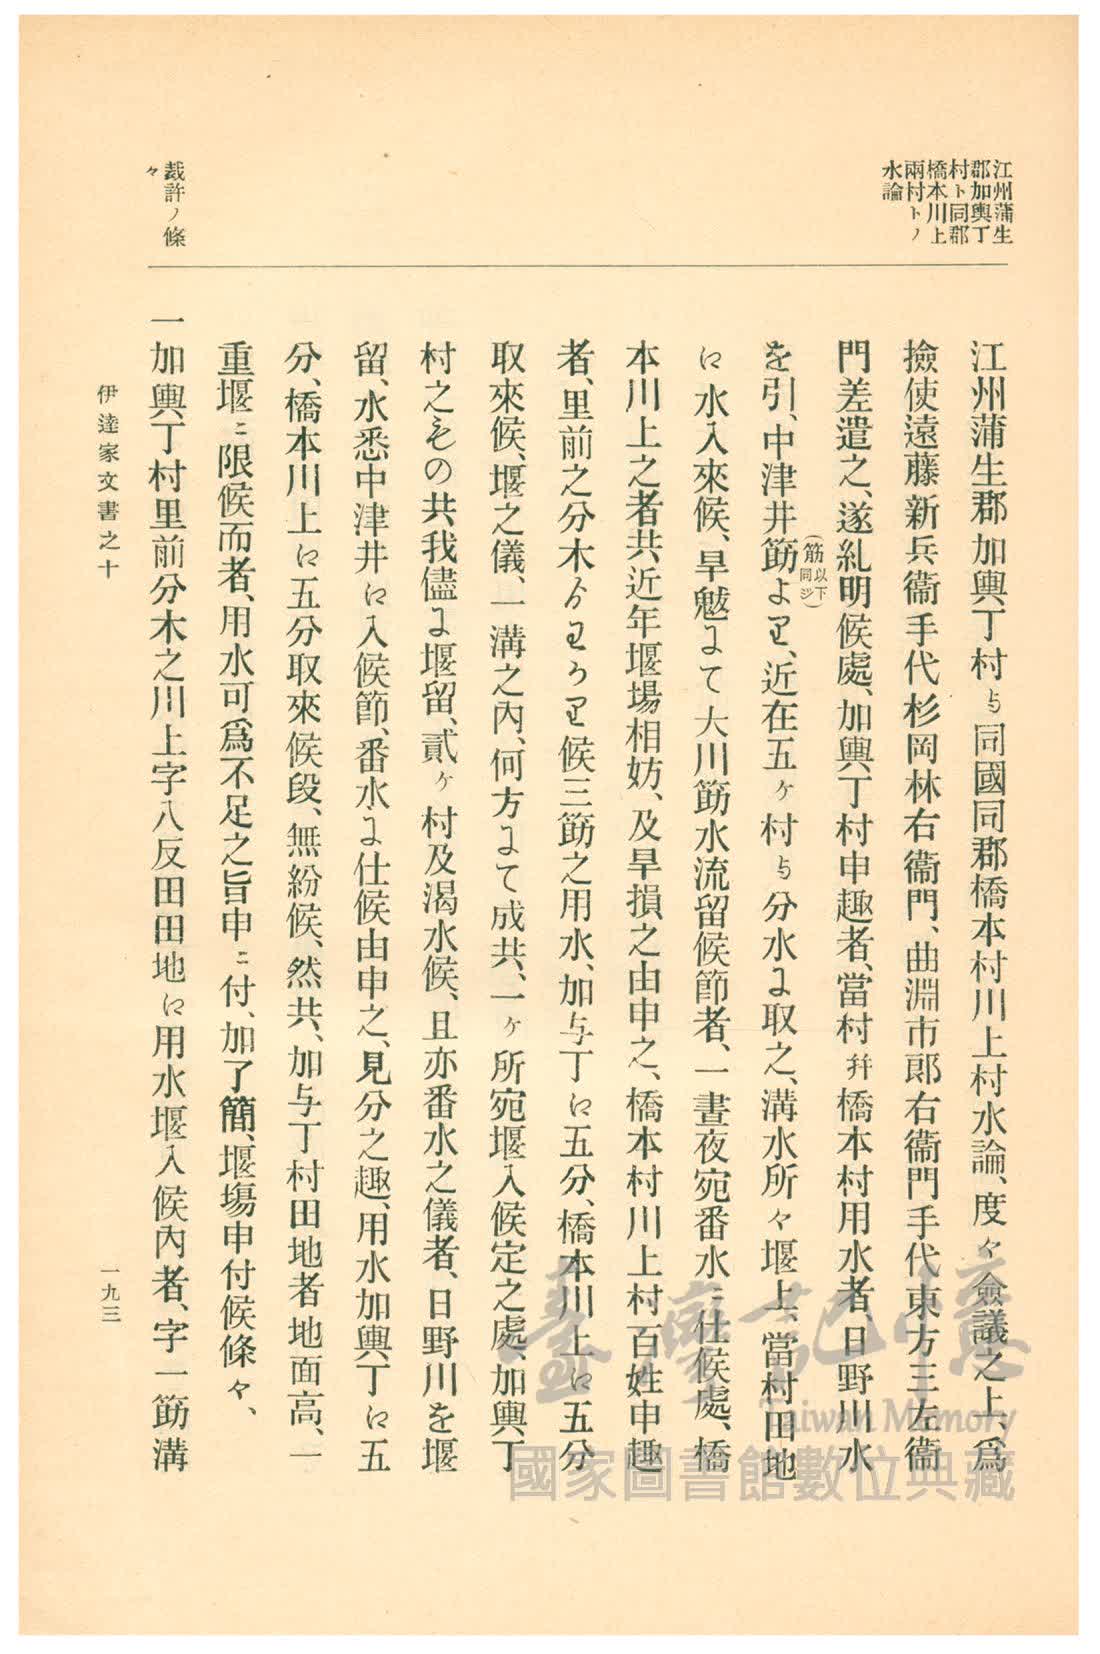 江州蒲生
郡加輿丁
村ト同郡
橋本川上
兩村トノ
水論
江州蒲生郡加輿丁村与同國同郡橋本村川上村水論、度々僉議之上、爲
撿使遠藤新兵衞手代杉岡林右衞門、曲淵市郎右衞門手代東方三左衞
門差遣之、遂糺明候處、加輿丁村申趣者、當村幷橋本村用水者、日野川水
を引、中津井筯ゟ、近在五ケ村与分水ニ取之、溝水所々堰上、當村田地
(筋以下同ジ)
江水入來候、旱魃ニて大川筯水流留候節者、一晝夜宛番水ニ仕候處、橋
本川上之者共、近年堰場相妨、及旱損之由申之、橋本村川上村百姓申趣
者、里前之分木ゟわかり候三筯之用水、加与丁江五分、橋本川上江五分
取來候、堰之儀、一溝之內、何方ニて成共、一ケ所宛堰入候定之處、加輿丁
村之ものの共、我儘ニ堰留、貳ケ村及渴水候、且亦番水之儀者、日野川を堰
留、水悉中津井江入候節、番水ニ仕候由申之、見分之趣、用水加輿丁江五
分、橋本川上江五分取來候段、無紛候、然共、加与丁村田地者地面高、一
重堰ニ限候而者、用水可爲不足之旨申ニ付、加了簡、堰塲申付候條々、
裁許ノ條
々
一加輿丁村里前分木之川上字八反田田地江用水堰入候內者、字一筯溝
伊達家文書之十
一九三
臺灣記憶
Taiwan Memory
國家圖書館數位典藏